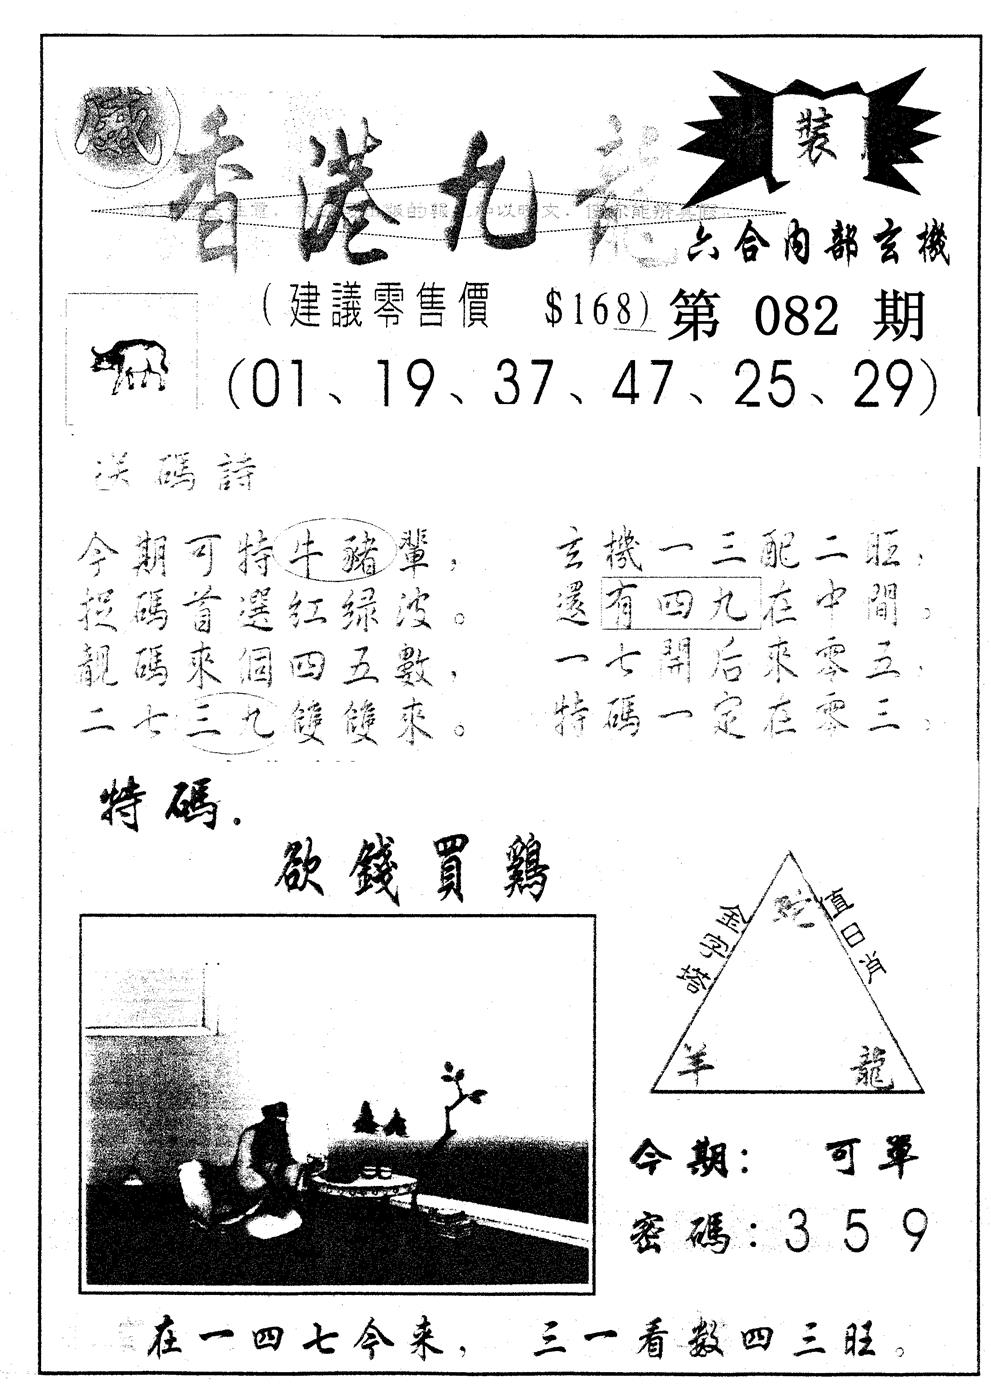 香港九龍
裝
六合內部玄機
(建議零售價 $168) 第 082 期
(01、19、37、47、25、29)
送碼詩
今期可特牛豬輩，
捉碼首選紅绿波。
靚碼來個四五數，
二七三九雙雙來。
玄機一三配二旺，
還有四九在中間。
一七開后來零五，
特碼一定在零三。
特碼.
欲錢買鷄
金字塔
值日肖
蛇
羊 龍
今期： 可單
密碼：3 5 9
在一四七今来， 三一看数四三旺。